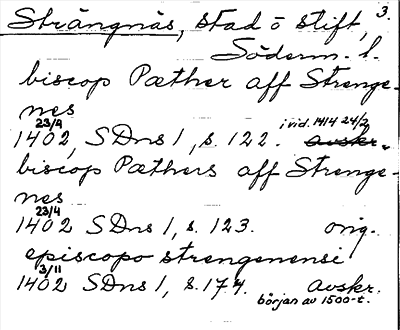 Strängnäs, stad o stift, 3.
Söderm. l.
biscop Pæther aff Strenge-
nes
23/4 i vid. 1414 24/2
1402, SDns 1, s. 122. avskr.
biscop Pæthers aff Strenge-
nes
23/4
1402 SDns 1, s. 123. orig.
episcopo strengenensi
3/11
1402 SDns 1, s. 174. avskr.
början av 1500-t.